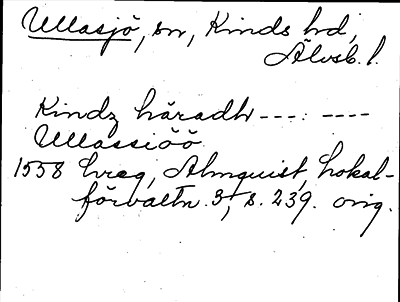 Ullasjö, sn, Kinds hd,
Älvsb. l.
Kindz häradh ---: ----
Ullassiöö
1558 hreg, Almquist, Lokal-
förvaltn. 3, s. 239. orig.